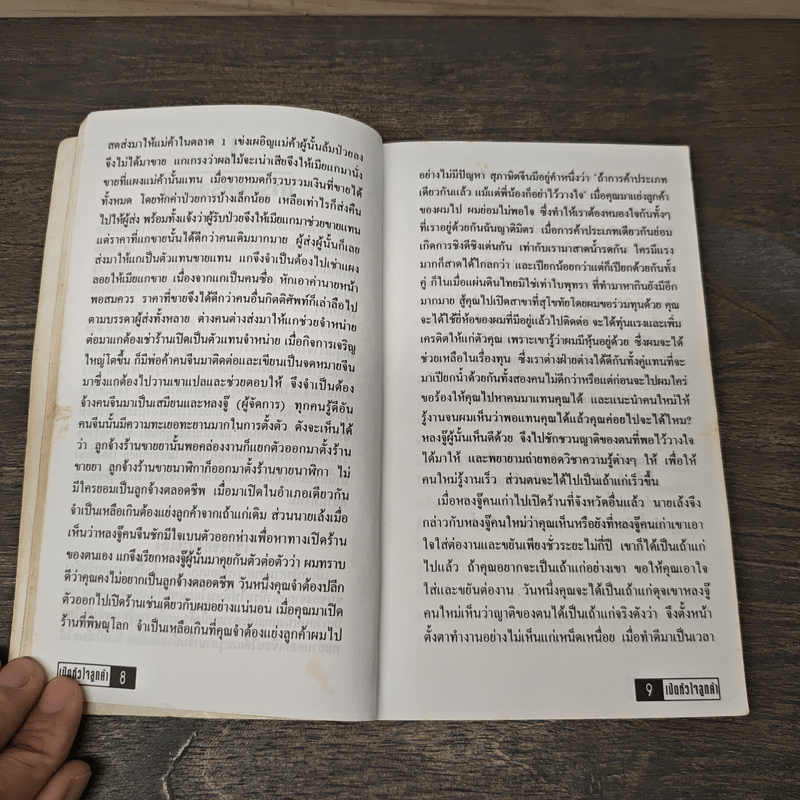 สดส่งมาให้แม่ค้าในตลาด 1 เข่งเผอิญแม่ค้าผู้นั้นล้มป่วยลง
จึงไม่ได้มาขาย แกเกรงว่าผลไม้จะเน่าเสียจึงให้เมียแกมานั่ง
ขายที่แผงแม่ค้านั้นแทน เมื่อขายหมดก็รวบรวมเงินที่ขายได้
ทั้งหมด โดยหักค่าป่วยการบ้างเล็กน้อย เหลือเท่าไรก็ส่งคืน
ไปให้ผู้ส่ง พร้อมทั้งแจ้งว่าผู้รับป่วยจึงให้เมียแกมาช่วยขายแทน
แต่ราคาที่แกขายนั้นได้ดีกว่าคนเดิมมากมาย ผู้ส่งผู้นั้นก็เลย
ส่งมาให้แกเป็นตัวแทนขายแทน แกจึงจำเป็นต้องไปเช่าแผง
ลอยให้เมียแกขาย เนื่องจากแกเป็นคนซื่อ หักเอาค่านายหน้า
พอสมควร ราคาที่ขายจึงได้ดีกว่าคนอื่นกิตติศัพท์ก็เล่าลือไป
ตามบรรดาผู้ส่งทั้งหลาย ต่างคนต่างส่งมาให้แกช่วยจำหน่าย
ต่อมาแกต้องเช่าร้านเปิดเป็นตัวแทนจำหน่าย เมื่อกิจการเจริญ
ใหญ่โตขึ้น ก็มีพ่อค้าคนจีนมาติดต่อและเขียนเป็นจดหมายจีน
มาซึ่งแกต้องไปวานเขาแปลและช่วยตอบให้ จึงจำเป็นต้อง
จ้างคนจีนมาเป็นเสมียนและหลงจู๊ (ผู้จัดการ) ทุกคนรู้ดีอัน
คนจีนนั้นมีความทะเยอทะยานมากในการตั้งตัว ดังจะเห็นได้
ว่า ลูกจ้างร้านขายยานั้นพอคล่องงานก็แยกตัวออกมาตั้งร้าน
ขายยา ลูกจ้างร้านขายนาฬิกาก็ออกมาตั้งร้านขายนาฬิกา ไม่
มีใครยอมเป็นลูกจ้างตลอดชีพ เมื่อมาเปิดในอำเภอเดียวกัน
จำเป็นเหลือเกินต้องแย่งลูกค้าจากเถ้าแก่เดิม ส่วนนายเล้งเมื่อ
เห็นว่าหลงจู๊คนจีนชักมีใจเบนตัวออกห่างเพื่อหาทางเปิดร้าน
ของตนเอง แกจึงเรียกหลงจู๊ผู้นั้นมาคุยกันตัวต่อตัวว่า ผมทราบ
ดีว่าคุณคงไม่อยากเป็นลูกจ้างตลอดชีพ วันหนึ่งคุณจำต้องปลีก
ตัวออกไปเปิดร้านเช่นเดียวกับผมอย่างแน่นอน เมื่อคุณมาเปิด
ร้านที่พิษณุโลก จำเป็นเหลือเกินที่คุณจำต้องแย่งลูกค้าผมไป
เปิดหัวใจลูกค้า 8
อย่างไม่มีปัญหา สุภาษิตจีนมีอยู่คำหนึ่งว่า "ถ้าการค้าประเภท
เดียวกันแล้ว แม้แต่พี่น้องก็อย่าไว้วางใจ" เมื่อคุณมาแย่งลูกค้า
ของผมไป ผมย่อมไม่พอใจ ซึ่งทำให้เราต้องหมองใจกันทั้งๆ
ที่เราอยู่ด้วยกันฉันญาติมิตร เมื่อการค้าประเภทเดียวกันย่อม
เกิดการชิงดีชิงเด่นกัน เท่ากับเรามาสาดน้ำรดกัน ใครมีแรง
มากก็สาดได้ไกลกว่า และเปียกน้อยกว่าแต่ก็เปียกด้วยกันทั้ง
คู่ ก็ในเมื่อแผ่นดินไทยมิใช่เท่าใบพุทรา ที่ทำมาหากินยังมีอีก
มากมาย สู้คุณไปเปิดสาขาที่สุโขทัยโดยผมขอร่วมทุนด้วย คุณ
จะได้ใช้ยี่ห้อของผมที่มีอยู่แล้วไปติดต่อ จะได้ทุ่นแรงและเพิ่ม
เครดิตให้แก่ตัวคุณ เพราะเขารู้ว่าผมมีหุ้นอยู่ด้วย ซึ่งผมจะได้
ช่วยเหลือในเรื่องทุน ซึ่งเราต่างฝ่ายต่างได้ดีกันทั้งคู่แทนที่จะ
มาเปียกน้ำด้วยกันทั้งสองคนไม่ดีกว่าหรือแต่ก่อนจะไปผมใคร่
ขอร้องให้คุณไปหาคนมาแทนคุณได้ และแนะนำคนใหม่ให้
รู้งานจนผมเห็นว่าพอแทนคุณได้แล้วคุณค่อยไปจะได้ไหม?
หลงจู๊ผู้นั้นเห็นดีด้วย จึงไปชักชวนญาติของตนที่พอไว้วางใจ
ได้มาให้ และพยายามถ่ายทอดวิชาความรู้ต่างๆ ให้ เพื่อให้
คนใหม่รู้งานเร็ว ส่วนตนจะได้ไปเป็นเถ้าแก่เร็วขึ้น
เมื่อหลงจู๊คนเก่าไปเปิดร้านที่จังหวัดอื่นแล้ว นายเล้งจึง
กล่าวกับหลงจู๊คนใหม่ว่าคุณเห็นหรือยังที่หลงจู๊คนเก่าเขาเอา
ใจใส่ต่องานและขยันเพียงชั่วระยะไม่กี่ปี เขาก็ได้เป็นเถ้าแก่
ไปแล้ว ถ้าคุณอยากจะเป็นเถ้าแก่อย่างเขา ขอให้คุณเอาใจ
ใส่และขยันต่องาน วันหนึ่งคุณจะได้เป็นเถ้าแก่ดุจเขาหลงจู๊
คนใหม่เห็นว่าญาติของตนได้เป็นเถ้าแก่จริงดังว่า จึงตั้งหน้า
ตั้งตาทำงานอย่างไม่เห็นแก่เหน็ดเหนื่อย เมื่อทำดีมาเป็นเวลา
9 เปิดหัวใจลูกค้า